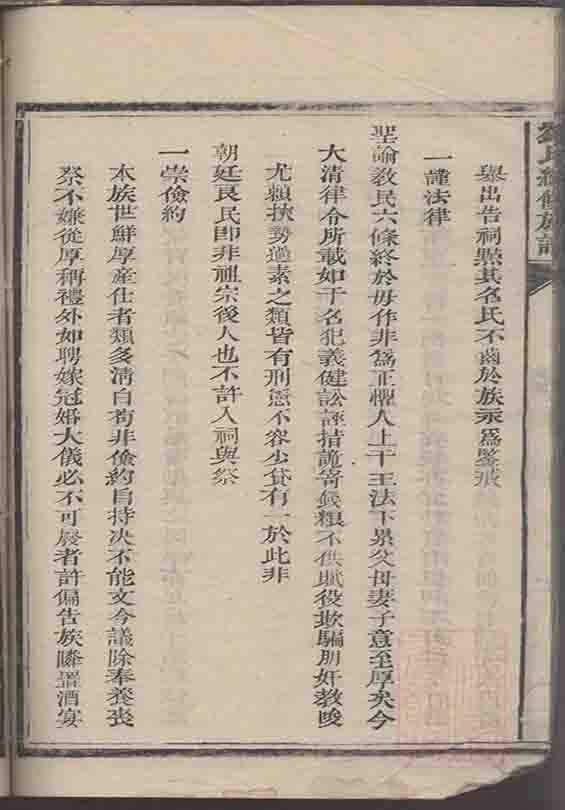 氏續修族譜
舉出告祠黜其名氏不齒於族示爲鑒戒
一謹法律
聖諭教民六條終於毋作非爲正懼人上干王法下累父母妻子意至厚矣今
大清律令所載如干名犯義健訟誣揹詭寄候粮不供賦役欺騙朋奸教唆
尤賴挾勢過素之類皆有刑憲不容少貸有一於此非
朝廷良民即非祖宗後人也不許入祠與祭
一崇儉約
本族世鮮厚產仕者類多清白苟非儉約自持決不能文今議除奉養喪
祭不嫌從厚稱禮外如聘嫁冠婚大儀必不可廢者許偏告族隣置酒宴